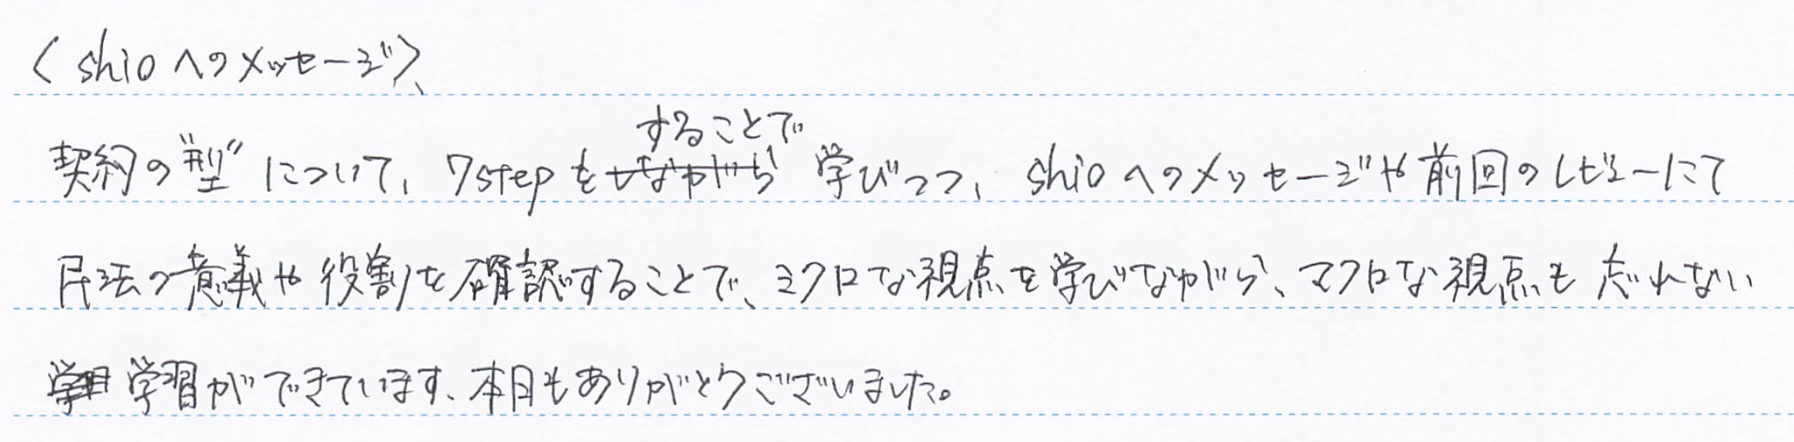 〈shioへのメッセージ〉
することで
契約の"型"について、7stepをしながら学びつつ、shioへのメッセージや前回のレビューにて
民法の意義や役割を確認することで、ミクロな視点を学びながら、マクロな視点も忘れない
学習ができています。本日もありがとうございました。